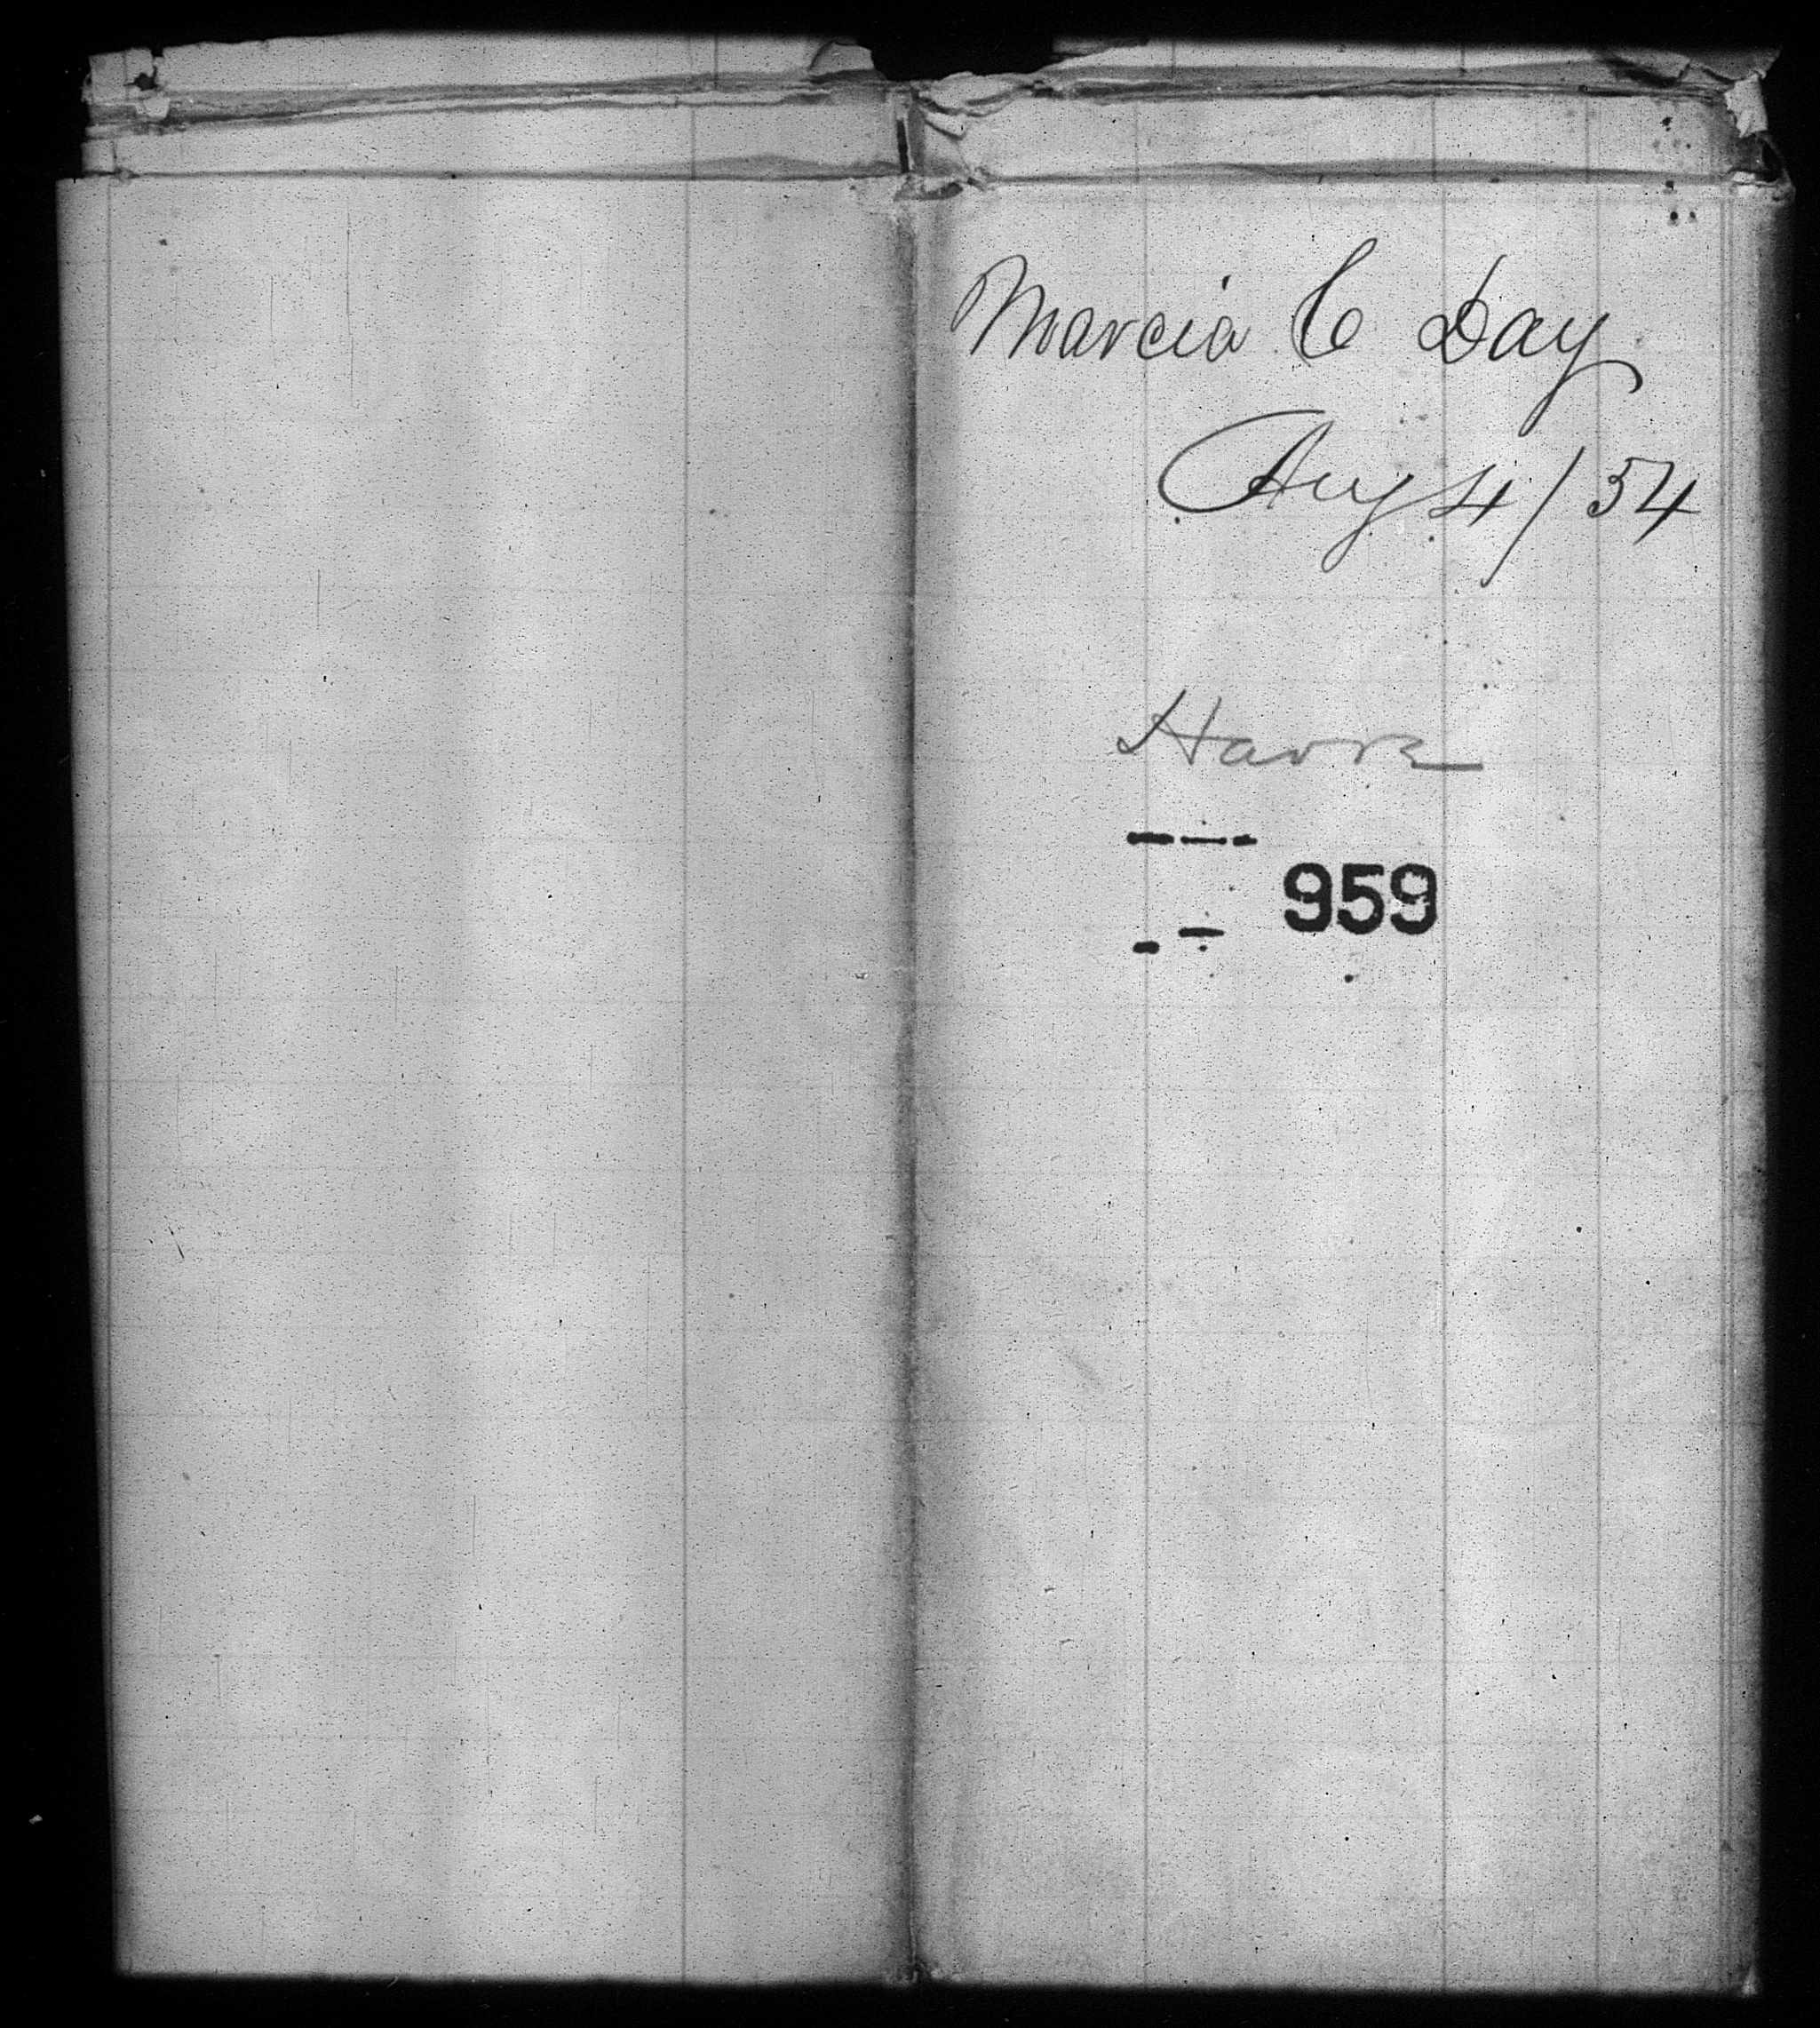 Marcia C Day
Aug 4/54
959